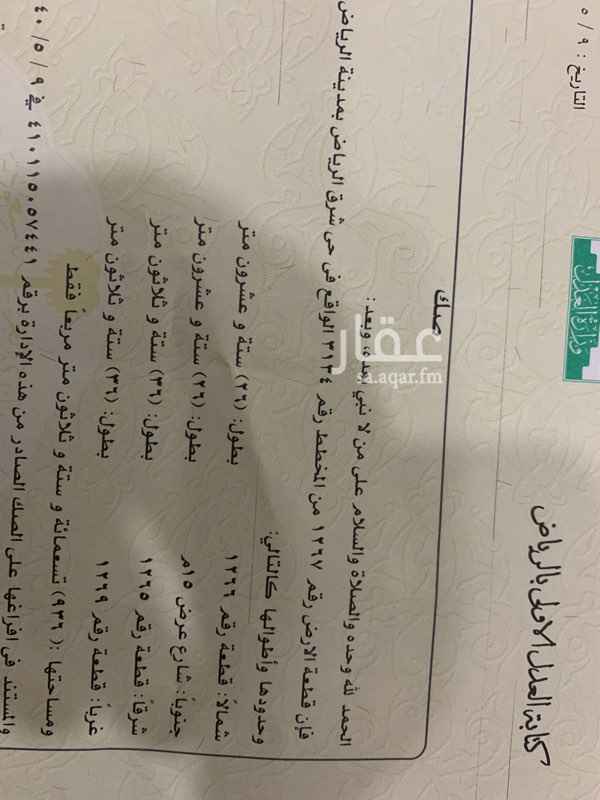 وزارة العدل
كتابة العدل الأولى بالرياض
التاريخ : ٩ / ٥
صك
الحمد لله وحده والصلاة والسلام على من لا نبي بعده، وبعد:
فإن قطعة الارض رقم ١٢٦٧ من المخطط رقم ٣١٣٤ الواقع في حي شرق الرياض بمدينة الرياض
وحدودها وأطوالها كالتالي:
شمالاً: قطعة رقم ١٢٦٦ بطول: (٢٦) ستة و عشرون متر
جنوباً: شارع عرض ١٥م بطول: (٢٦) ستة و عشرون متر
شرقاً: قطعة رقم ١٢٦٥ بطول: (٣٦) ستة و ثلاثون متر
غرباً: قطعة رقم ١٢٦٩ بطول: (٣٦) ستة و ثلاثون متر
ومساحتها : (٩٣٦) تسعمائة و ستة و ثلاثون متر مربعاً فقط
والمستند في افراغها على الصك الصادر من هذه الإدارة برقم ٤١٠١١٥٠٥٧٤٤١ في ٩ / ٥ / ٤٠
عقار
sa.aqar.fm